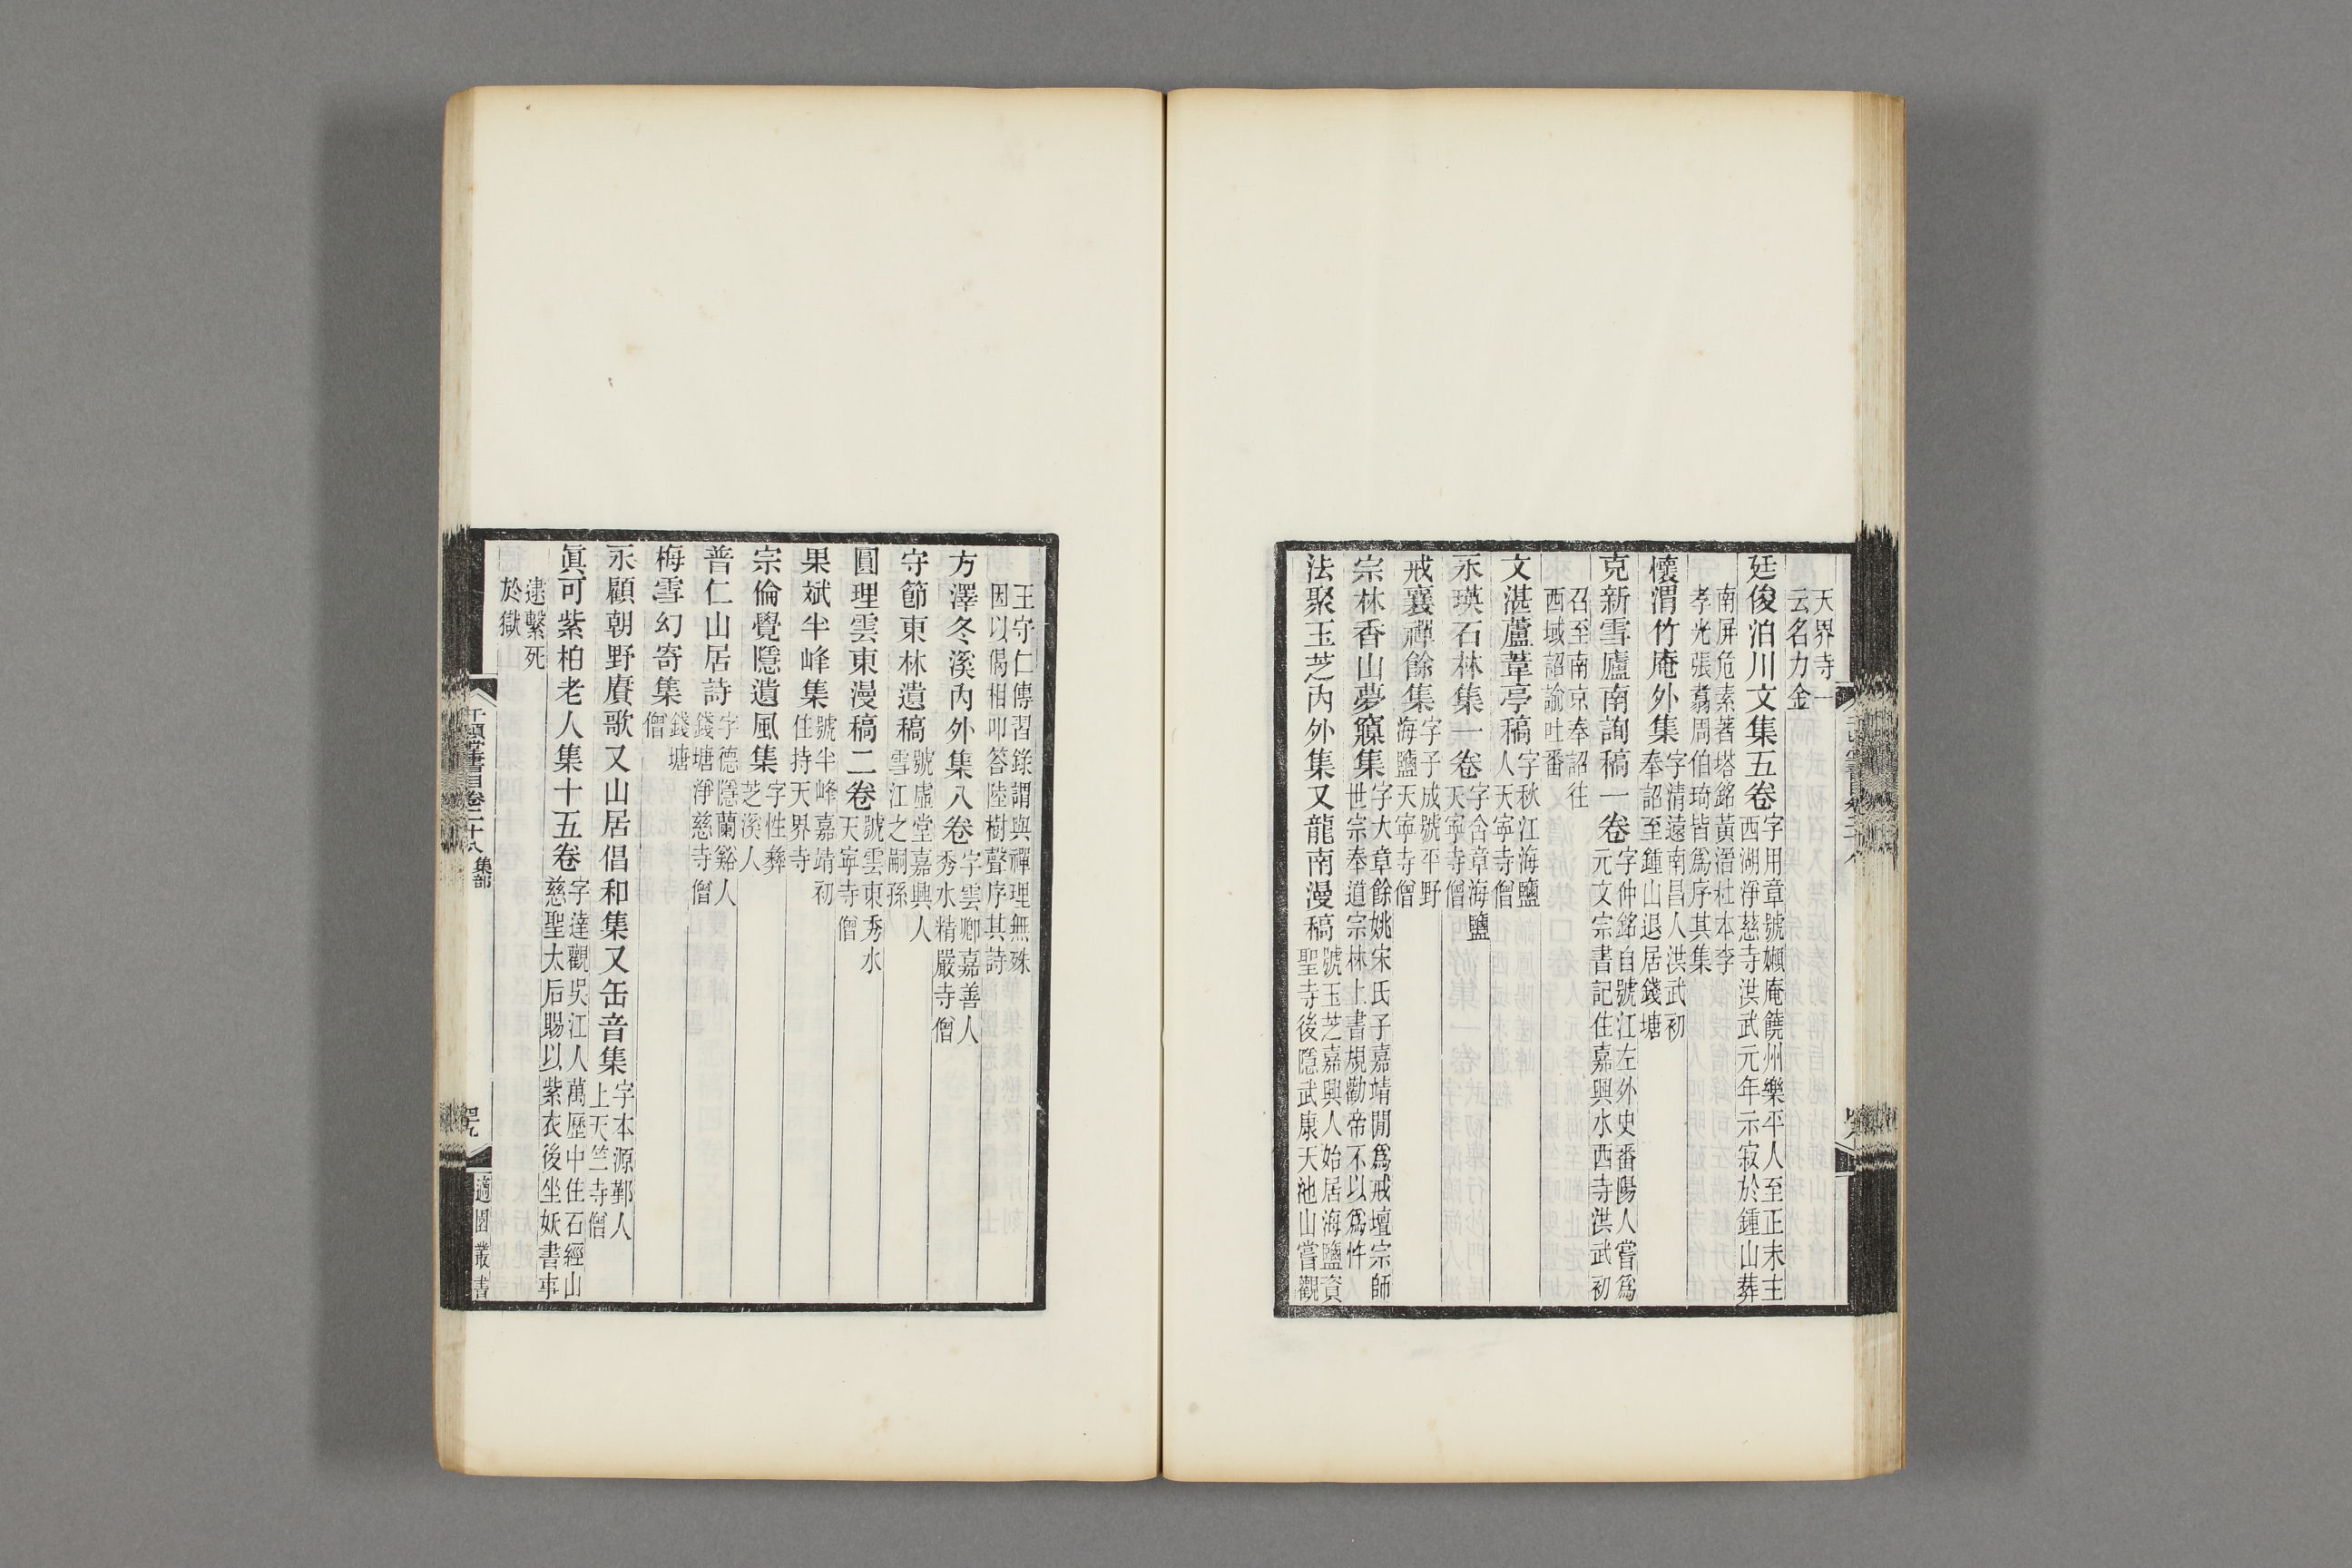 天界寺一
云名力金
廷俊泊川文集五卷字用章號嬾庵饒州樂平人至正末主
西湖淨慈寺洪武元年示寂於鍾山葬
南屏危素著塔銘黃溍杜本李
孝光張翥周伯琦皆爲序其集
懷渭竹庵外集字清遠南昌人洪武初
奉詔至鍾山退居錢塘
克新雪廬南詢稿一卷字仲銘自號江左外史番陽人嘗爲
元文宗書記住嘉興水西寺洪武初
召至南京奉詔往
西域詔諭吐番
文湛蘆葦亭稿字秋江海鹽
人天寧寺僧
永瑛石林集一卷字含章海鹽
天寧寺僧
戒襄禪餘集字子成號平野
海鹽天寧寺僧
宗林香山夢寱集字大章餘姚宋氏子嘉靖閒爲戒壇宗師
世宗奉道宗林上書規勸帝不以爲忤
法聚玉芝內外集又龍南漫稿號玉芝嘉興人始居海鹽資
聖寺後隱武康天池山嘗觀
王守仁傳習錄謂與禪理無殊
因以偈相叩答陸樹聲序其詩
方澤冬溪內外集八卷字雲卿嘉善人
秀水精嚴寺僧
守節東林遺稿號虛堂嘉興人
雪江之嗣孫
圓理雲東漫稿二卷號雲東秀水
天寧寺僧
果斌半峰集號半峰嘉靖初
住持天界寺
宗倫覺隱遺風集字性彝
芝溪人
普仁山居詩字德隱蘭谿人
錢塘淨慈寺僧
梅雪幻寄集錢塘
僧
永顧朝野賡歌又山居倡和集又缶音集字本源鄞人
上天竺寺僧
眞可紫柏老人集十五卷字達觀吳江人萬歷中住石經山
慈聖太后賜以紫衣後坐妖書事
逮繫死
於獄
千頃堂書目卷二十八 集部
適園叢書